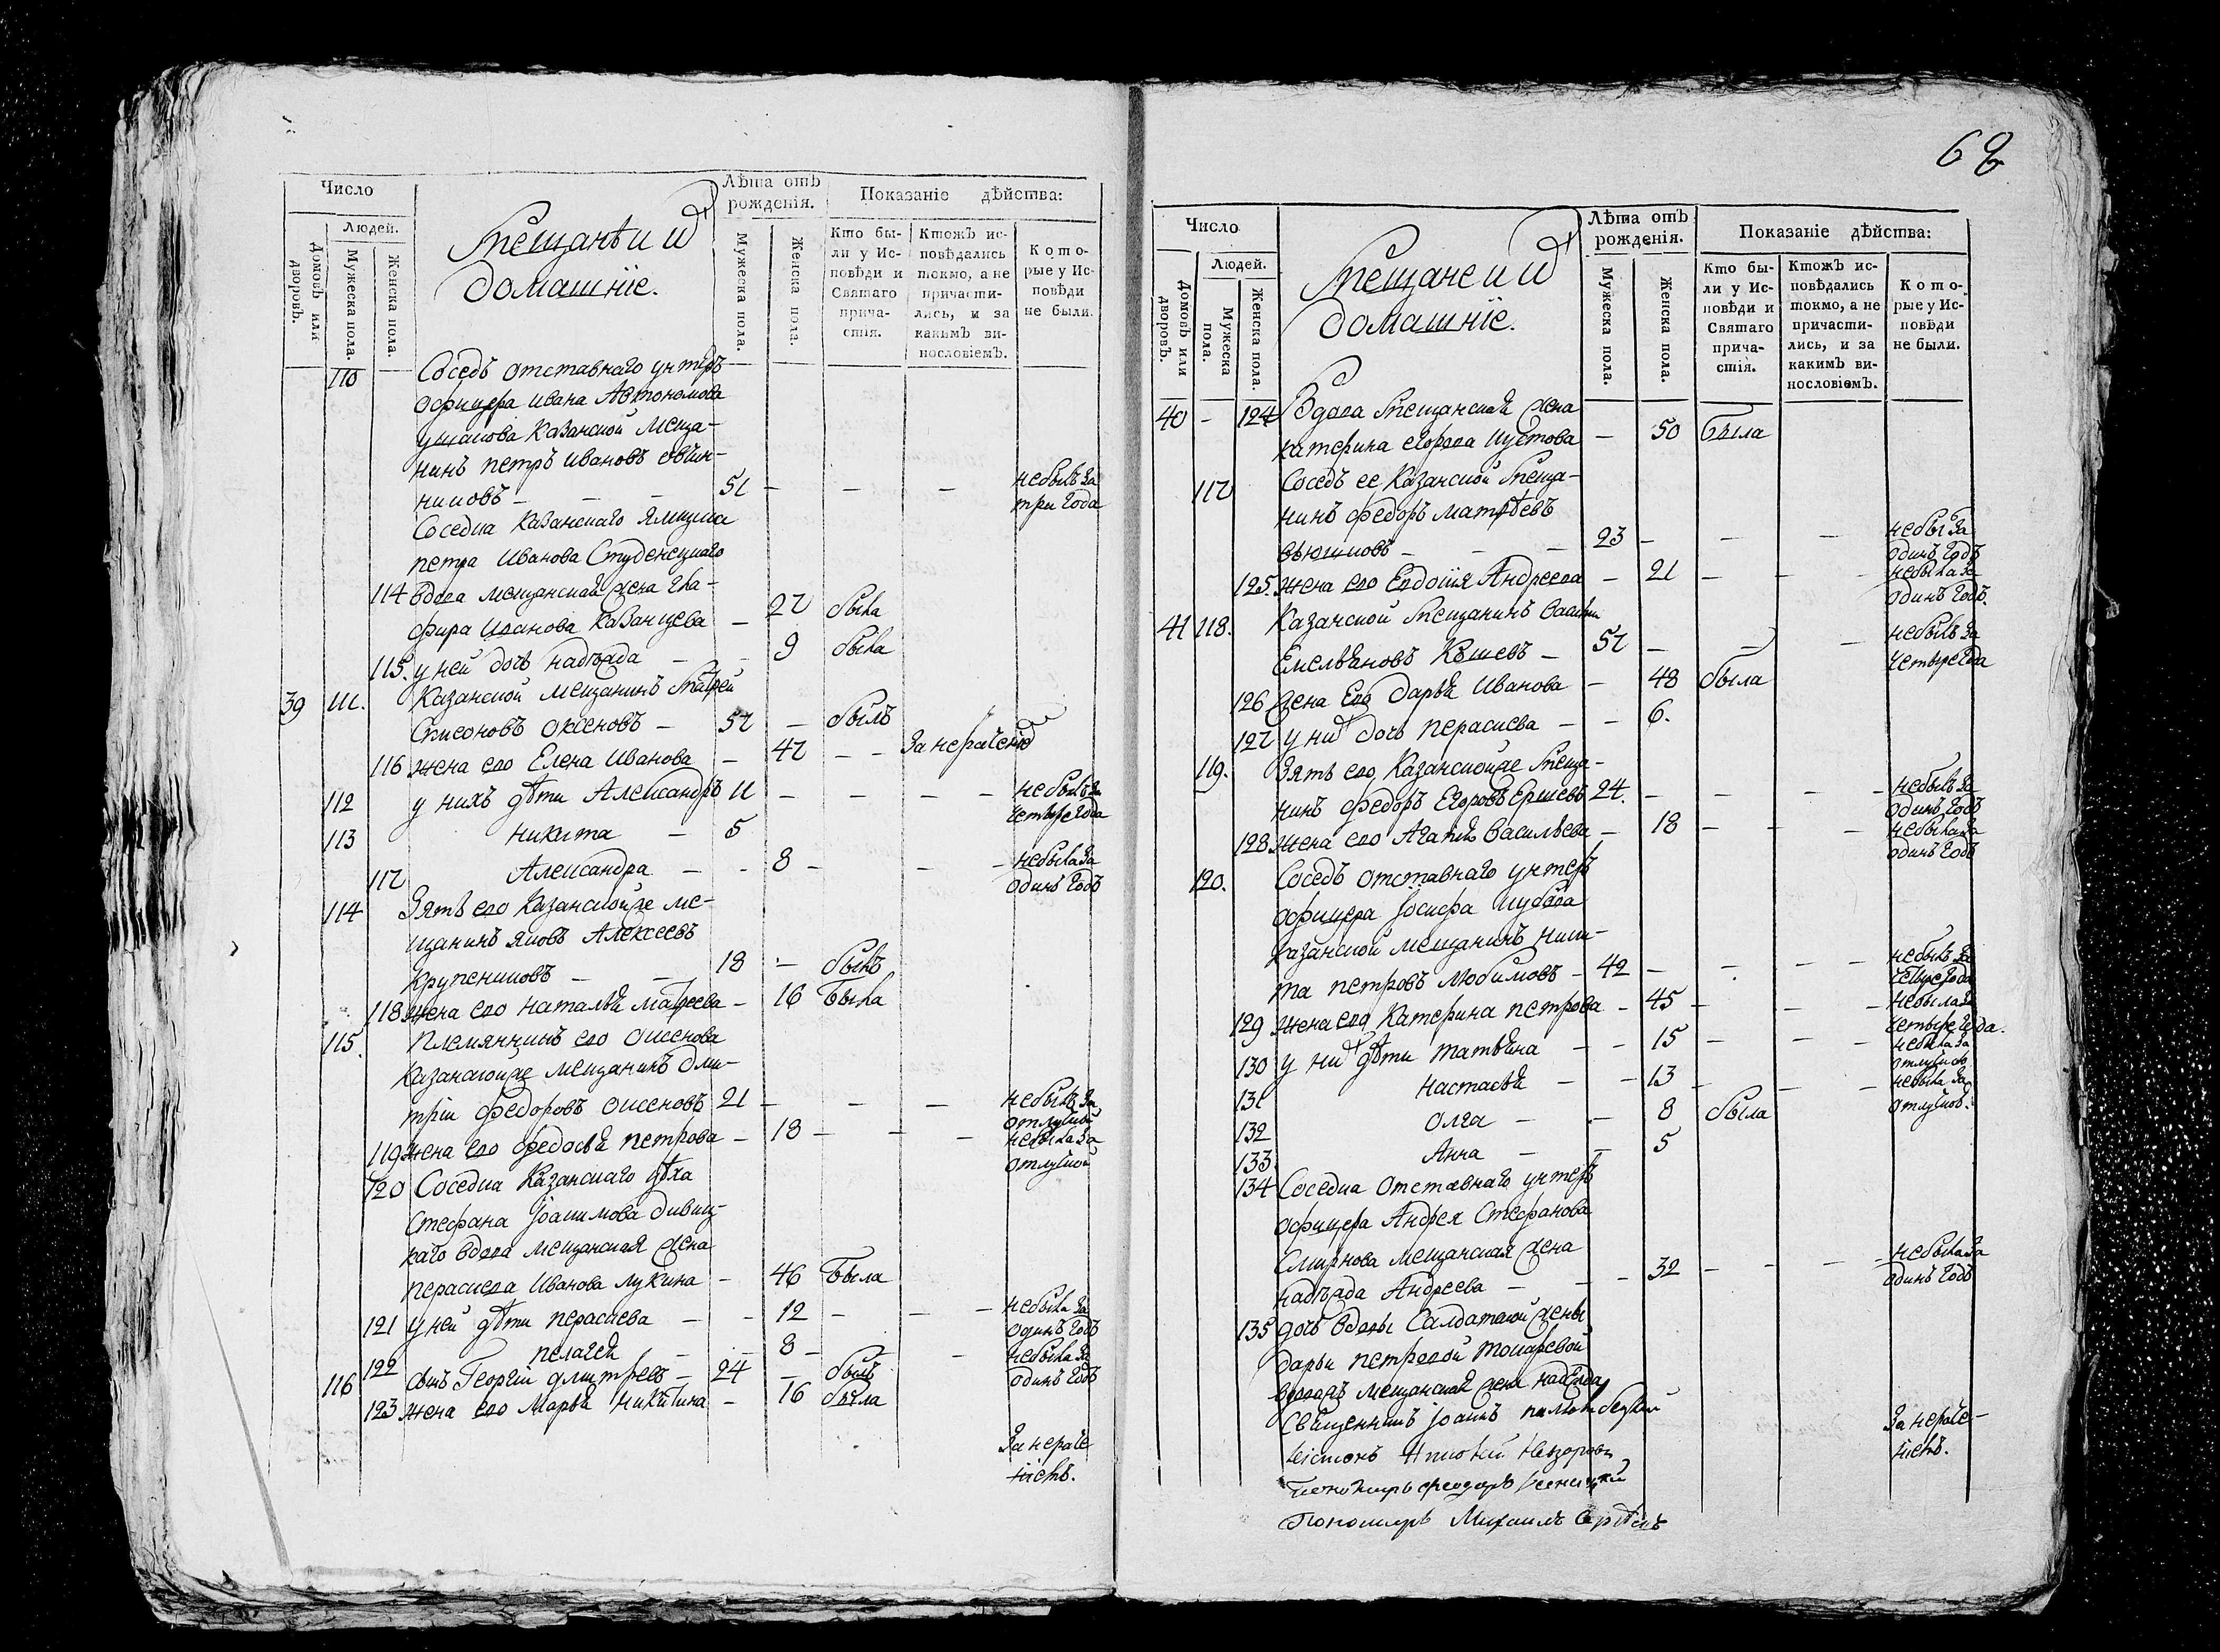 Число
Людей.
Домовъ или дворовъ.
Мужеска пола.
Женска пола.
Мещанѣ и ихъ
домашніе.
Лѣта отъ рожденія.
Мужеска пола.
Женска пола.
Показаніе дѣйства:
Кто были у Исповѣди и Святаго причастія.
Ктожъ исповѣдались токмо, а не причастились, и за какимъ винословіемъ.
Которые у Исповѣди не были.
110 Соседъ отставнаго унтеръ
офицера ивана Автономова
казанской меща-
нинъ петръ ивановъ овчин-
никовъ — 51 — — — небылъ за три года
Соседка казанскаго ямщика
петра иванова Студенецкаго
114 вдова мещанская жена гла-
фира иванова казанцева — 27 была
115. у ней дочь надѣжда — 9 была
39 111. Казанской мещанинъ матфей
Симеоновъ оксеновъ — 57 — былъ
116 жена его Елена иванова — 47 — — за нерачение
112 у нихъ дѣти Александръ 11 — — — небылъ за четыре года
113 никита — 5
117 Александра — — 8 — — — небыла за одинъ годъ
114 Зять его казанской же ме-
щанинъ яковъ Алексеевъ
крупениковъ — — 18 — былъ
118 жена его наталья матфеева — 16 была
115. племянникъ его оксенова
казанской же мещанинъ дми-
трїи федоровъ оксеновъ 21 — — — небылъ за отлучкой
119 жена его федосья петрова — 18 — — — небыла за отлучкой
120 Соседка казанскаго цѣха
Стефана Іоакимова
вдова мещанская жена
параскева иванова лукина — 46 была
121 у ней дѣти параскева — — 12 — — — небыла за одинъ годъ
122 пелагея — — 8 — — небыла за одинъ годъ
116 сынъ Георгій дмитревъ — 24 — былъ
123 жена его Марья никитина — 16 была
За нераче-
ніемъ.
68
Число
Людей.
Домовъ или дворовъ.
Мужеска пола.
Женска пола.
Мещане и ихъ
домашніе.
Лѣта отъ рожденія.
Мужеска пола.
Женска пола.
Показаніе дѣйства:
Кто были у Исповѣди и Святаго причастія.
Ктожъ исповѣдались токмо, а не причастились, и за какимъ винословіемъ.
Которые у Исповѣди не были.
40 — 124 Вдова мещанская жена
катерина егорова — 50 была
117 Соседъ ее казанской меща-
нинъ федоръ матвѣевъ
вьюшковъ — — — 23 — — — небылъ за одинъ годъ
125. жена его Евдокія Андреева — 21 — — — небыла за одинъ годъ.
41 118. Казанской мещанинъ василей
Емельяновъ — 57 — — — небылъ за четыре года
126 жена его дарья иванова — 48 была
127 у них дочь параскева — — 6.
119. Зять его казанской же меща-
нинъ федоръ Егоровъ Ершевъ 24. — — — небылъ за одинъ годъ
128 жена его Агапия васильева — 18 — — — небыла за одинъ годъ
120. Соседъ отставнаго унтеръ
офицера Іосифа
казанской мещанинъ ники-
та петровъ любимовъ — 42 — — — небылъ за четыре года
129 жена его катерина петрова — 45 — — — небыла за четыре года.
130 у них дѣти татьяна — — 15 — — — небыла за отлучкой
131 настасья — — 13 — — — небыла за отлучкой.
132 олга — — 8 была
133. Анна — — 5
134 Соседка отставнаго унтеръ
офицера Андрея Стефанова
Смирнова мещанская жена
надѣжда Андреева — — — 32 — — — небыла за одинъ годъ
135 дочь вдовы Салдатской жены
дарьи петровой токаревой
мещанская жена надѣжда
Священникъ Іоаннъ
За нераче-
ніемъ.
Пономарь
Пономарь Михаилъ